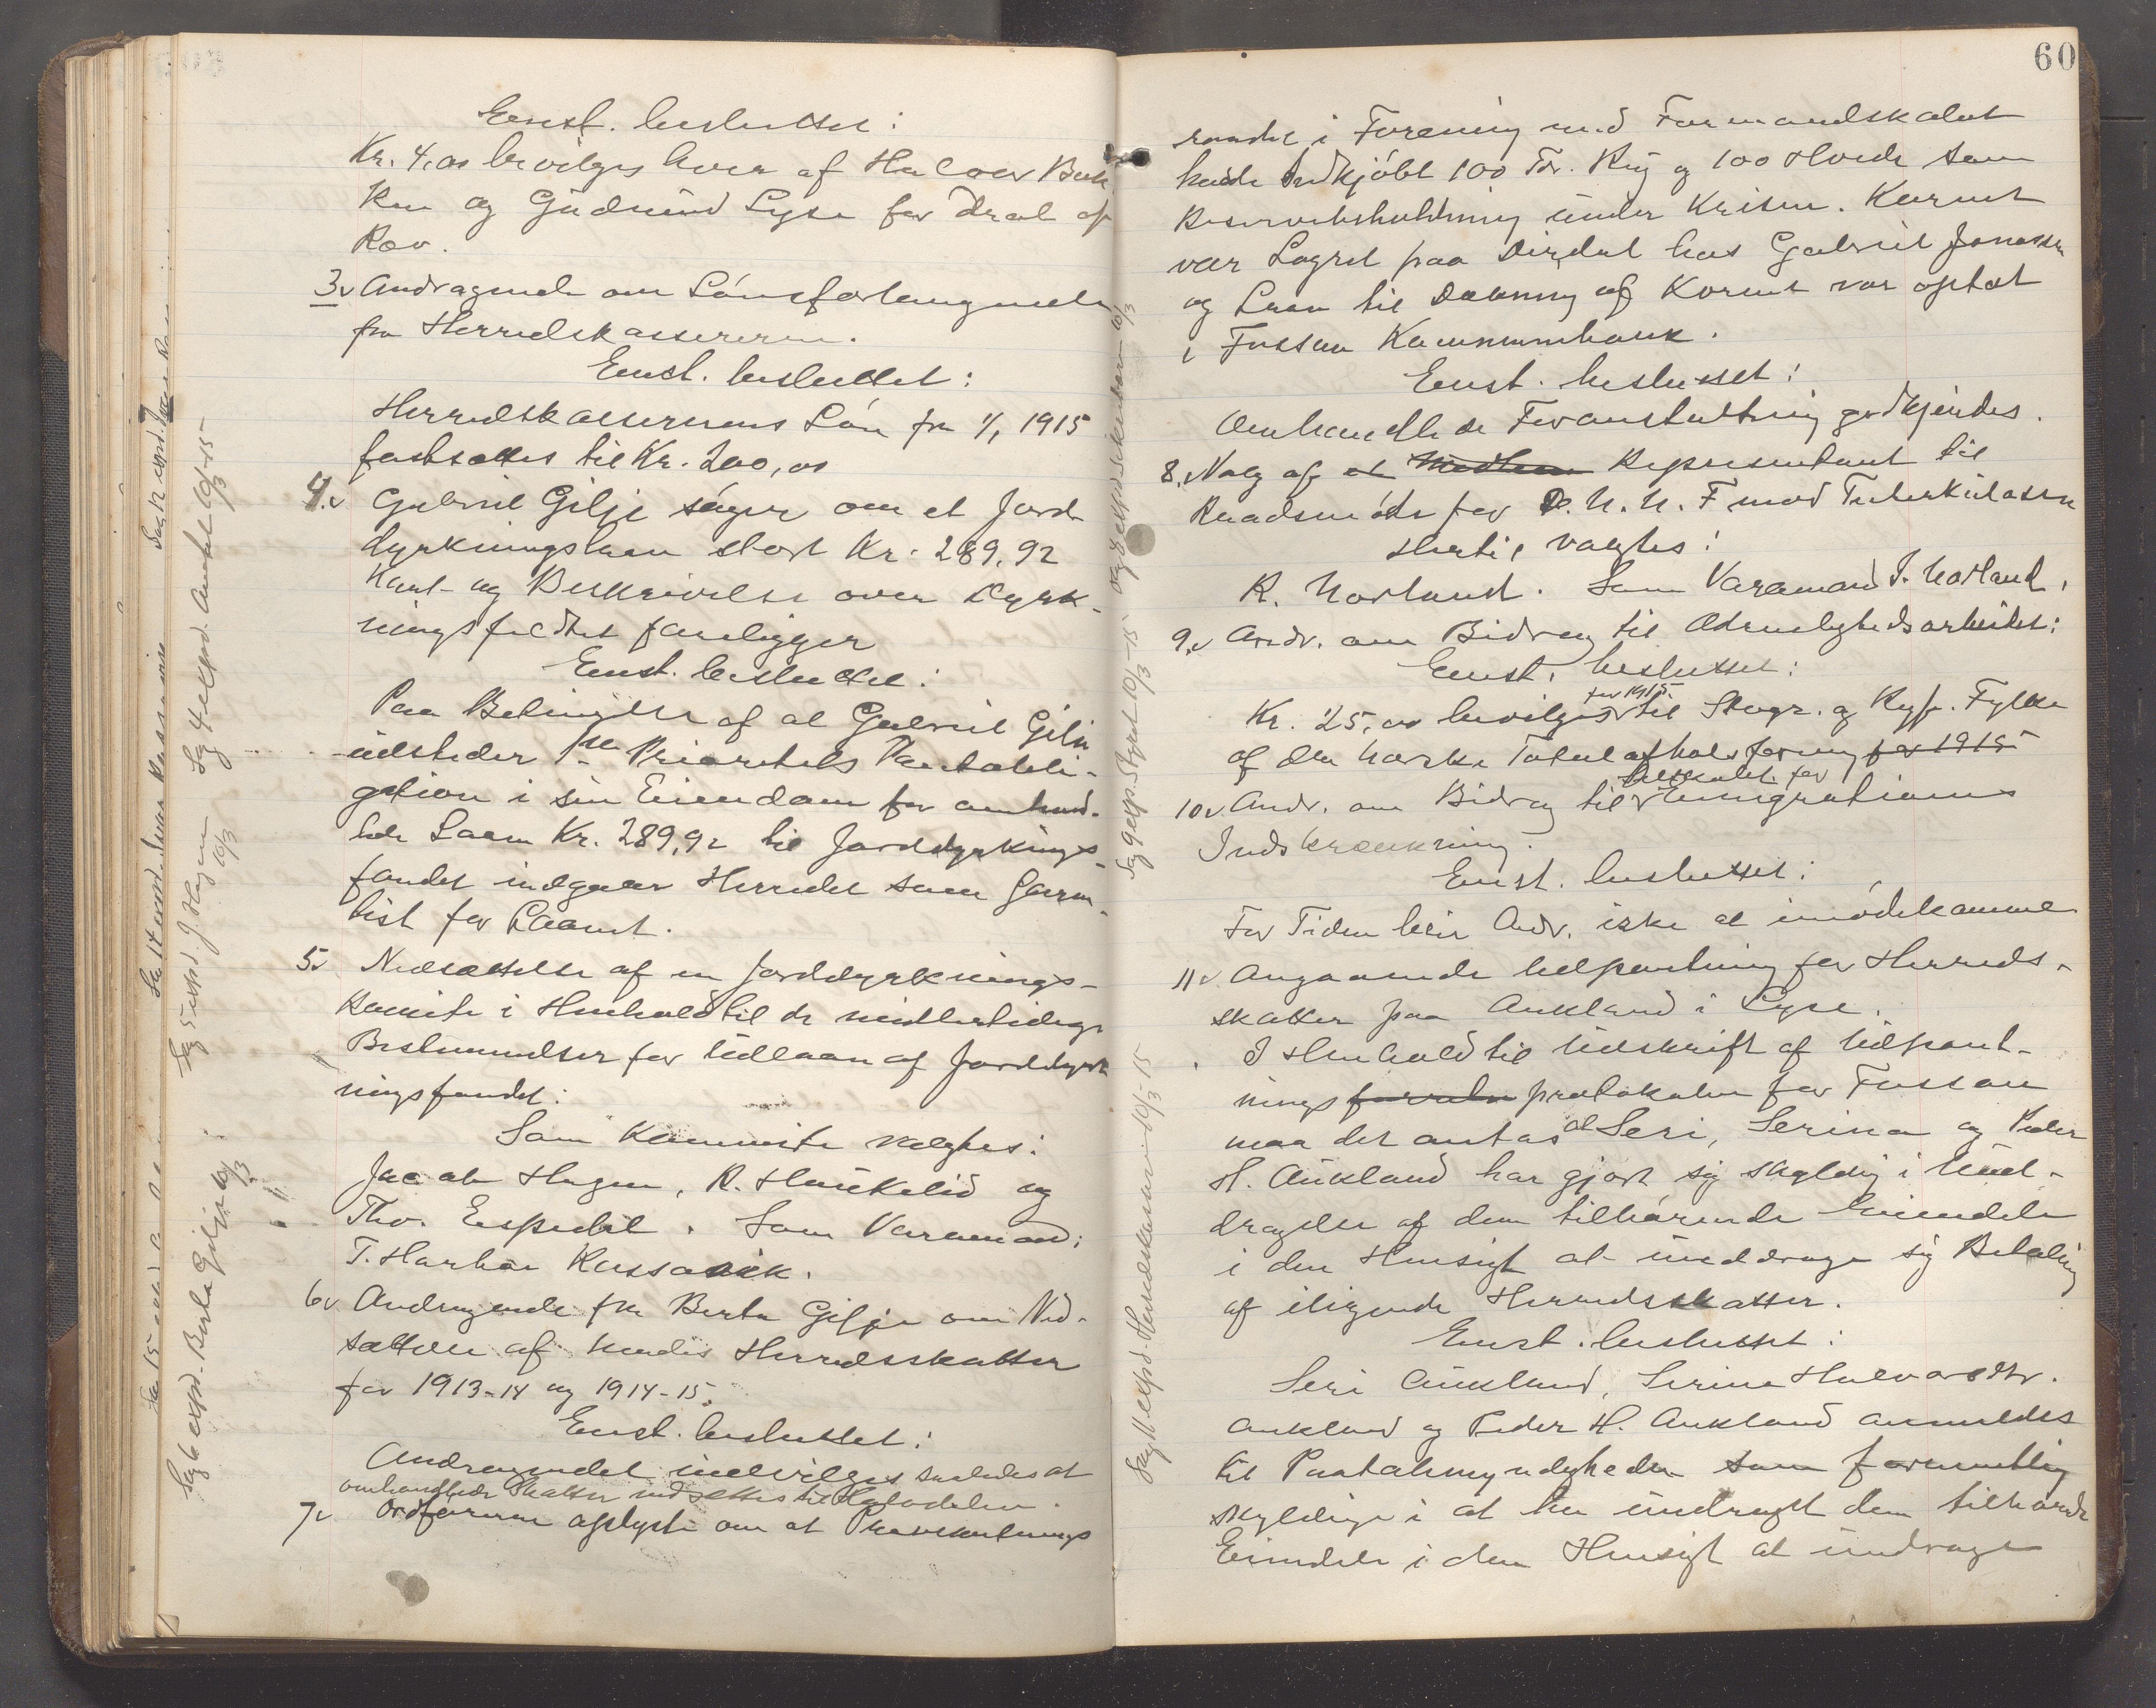 Eenst. besluttet:
Kr. 4,00 bevilges hver af Halvor Bak
ken og Gudmund Lyse for Dræbt af
Ræv.
3 Andragende om Lønsforlængmede
fra Herredskassereren.
Eenst. besluttet:
Herredskassererens Løn fra 1/1 1915
fastsættes til Kr. 200,00
4. Gabriel Gilje søger om et Jord
dyrkningslaan stort Kr. 289,92
Kart- og Beskrivelse over Dyrk-
ningsfeltet foreligger
Eenst. besluttet:
Paa Betingelse af at Gabriel Gilje
udsteder 1ste Prioritets Pantobli-
gation i sin Eiendom for omhand-
lede Laan Kr. 289,92 til Jorddyrknings-
fondet indgaar Herredet som Garan-
tist for Laanet.
5 Nedsættelse af en Jorddyrknings-
komite i Henhold til de midlertidige
Bestemmelser for Udlaan af Jorddyrk
ningsfondet.
Som Kommite valgtes:
Jacob Hagen, R. Haukelid og
Tho. Espedal. Som Varamænd:
T. Harbo Rossavik.
6 Andragende fra Berta Gilje om Ned-
sættelse af hendes Herredsskatter
for 1913-14 og 1914-15.
Eenst. besluttet:
Andragendet indvilges saaledes at
omhandlede Skatter nedsættes til Halvdelen.
7 Ordføreren oplyste om at Provianterings
Sag 6 expd. Berta Gilje 10/3
Sag 5 expd. J. Hagen 10/3
Sag 4 expd. Amtet 10/3-15
60
raadet i Forening med Formandskabet
havde Indkjøbt 100 Tdr. Rug og 100 Hvede som
Reservebeholdning under Krisen. Kornet
var Lagret paa Dirdal hos Gabriel Jonassen
og Laan til Dækning af Kornet var optat
i Fossan Kommunebank.
Eenst. besluttet:
Omhandlede Foranstaltning godkjendes.
8. Valg af et Medlem Representant til
Raadsmøde for D. N. N. F mod Tuberkulosen
Hertil valgtes:
R. Norland. Som Varamand T. Norland.
9. Andr. om Bidrag til Ædruelighedsarbeidet:
Eenst. besluttet:
Kr. 25,00 bevilges for 1915 til Stavgr. og Ryf. Fylke
af den norske Totalafholdsforening for 1915
10 Andr. om Bidrag til Selskabet for Emigrationens
Indskrænkning.
Eenst. besluttet:
For Tiden blir Andr. ikke at imødekomme
11 Angaaende Udpantning for Herreds-
skatter paa Aukland i Lyse.
I Henhold til Udskrift af Udpant-
nings forretn protokolen for Fossan
maa det antas at Seri, Serina og Peder
H. Aukland har gjort sig skyldig i Und-
dragelse af dem tilhørende Eiendele
i den Hensigt at unddrage sig Betaling
af iligende Herredsskatter.
Eenst. besluttet:
Seri Aukland, Serine Halvorsdtr.
Aukland og Peder H. Aukland anmeldes
til Paatalemyndigheden som formentlig
skyldige i at ha undragt dem tilhørende
Eiendele i den Hensigt at undrage
Sag 9 exp. Styret 10/3-15
Sag 11 expd. Herredskasseren 10/3-15